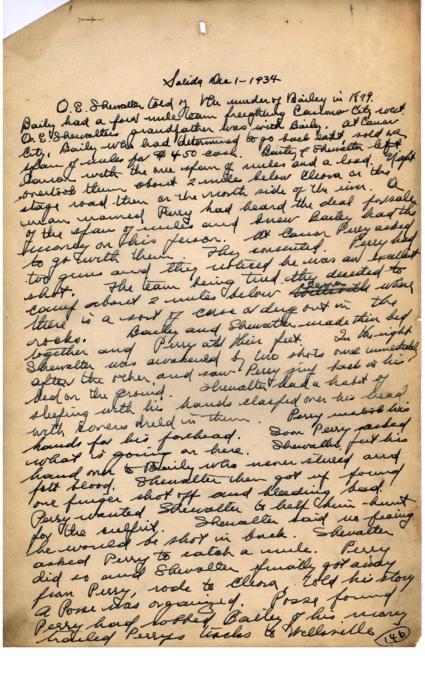 Salida Dec 1-1934
O. E. Shewalter told of the murder of Bailey in 1879.
Bailey had a four mule team freighting Canon City west
O. E. Shewalter's grandfather was with Baily. At Canon
City, Baily who had determined to go back east sold one
span of mules for $450 cash. Baily & Shewalter left
Canon with the one span of mules and a load. Night
overtook them about 2 miles below Cleora on the
stage road then on the north side of the river. A
man named Perry had heard the deal for sale
of the span of mules and knew Bailey had the
money on his person. At Canon Perry asked
to go with them. They consented. Perry had
two guns and they noticed he was an excellent
shot. The team being tired they decided to
camp about 2 miles below where
there is a sort of cave or dug out in the
rocks. Bailey and Shewalter made their bed
together and Perry at their feet. In the night
Shewalter was awakened by two shots one immediately
after the other, and saw Perry jump back in his
bed on the ground. Shewalter had a habit of
sleeping with his hands clasped over his head
with covers held in them. Perry mistook his
hands for his forehead. Soon Perry asked
what is going on here. Shewalter put his
hand over to Baily who never stirred and
felt blood. Shewalter then got up found
one finger shot off and bleeding bad
Perry wanted Shewalter to help him hunt
for the culprit. Shewalter said no fearing
he would be shot in back. Shewalter
asked Perry to catch a mule. Perry
did so and Shewalter finally got away
from Perry, rode to Cleora told his story
a Posse was organized. Posse found
Perry had robbed Bailey of his money
trailed Perrys tracks to Wellsville
146